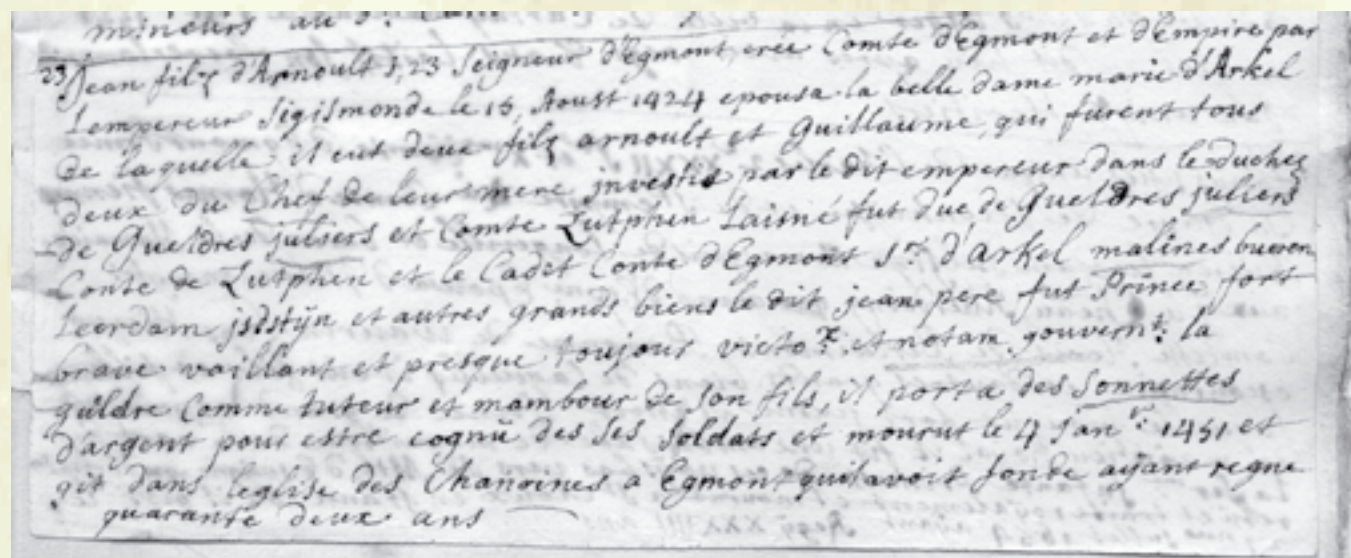 mineurs au
23 Jean filz d'Arnoult s, 23 Seigneur d'Egmont, creé Comte d'Egmont et d'Empire par
Lempereur Sigismonde le 15, Aoust 1424 epousa la belle dame marie d'Arkel
de laquelle il eut deux filz arnoult et Guillaume, qui furent tous
deux du Chef de leur mere jnvestis par le dit empereur dans le duchez
de Gueldres juliers et Comte Zutphen Laisné fut duc de Gueldres juliers
Conte de Zutphen et le Cadet Conte d'Egmont Sr. d'Arkel malines bueren
Leerdam jsestijn et autres grands biens le dit jean pere fut Prince fort
brave vaillant et presque toujour victo.x et notam. gouvernt. la
guldre Comme tuteur et mambour de son fils, il porta des Sonnettes
d'argent pour estre cognü des ses soldats et mourut le 4 Janvr. 1451 et
git dans leglise des Chanoines a Egmont quilavoit fonde aÿant regne
quarante deux ans